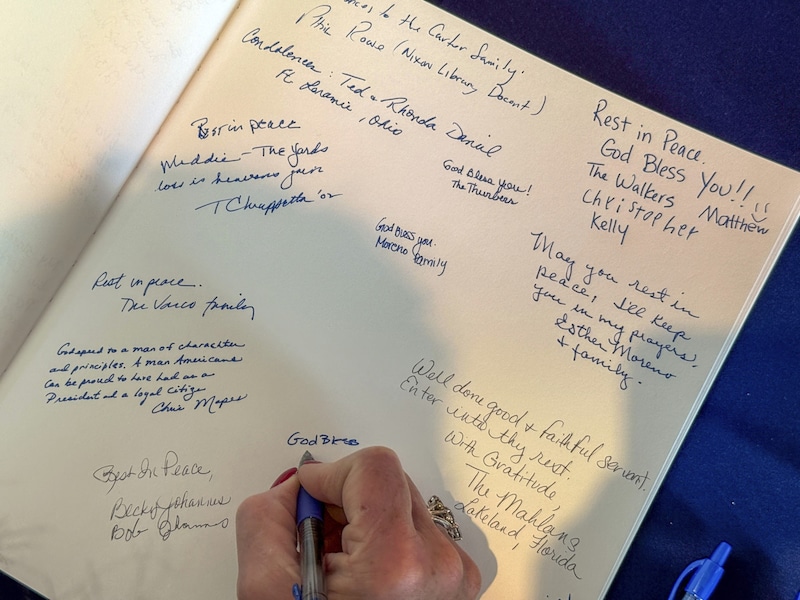 to the Carter family.
Phil Rowe (Nixon Library Docent)
Condolences: Ted & Rhonda Daniel
Ft. Laramie, Ohio
Rest in peace
The Yards
loss is heavens gain
God Bless you!
The Thurbers
God Bless you.
Moreno family
Rest in Peace.
God Bless You!!
The Walkers Matthew
Christopher
Kelly
May you rest in
peace, I'll keep
you in my prayers.
Esther Moreno
& family.
Rest in peace.
The Vasco family
Godspeed to a man of charachter
and principles. A man Americans
Can be proud to have had as a
President and a loyal citizen
Chris Mapes
Well done good & faithful servant.
Enter unto thy rest.
With Gratitude
The Mahlans
Lakeland, Florida
God Bless
Rest In Peace,
Becky Johannes
Bob Johannes